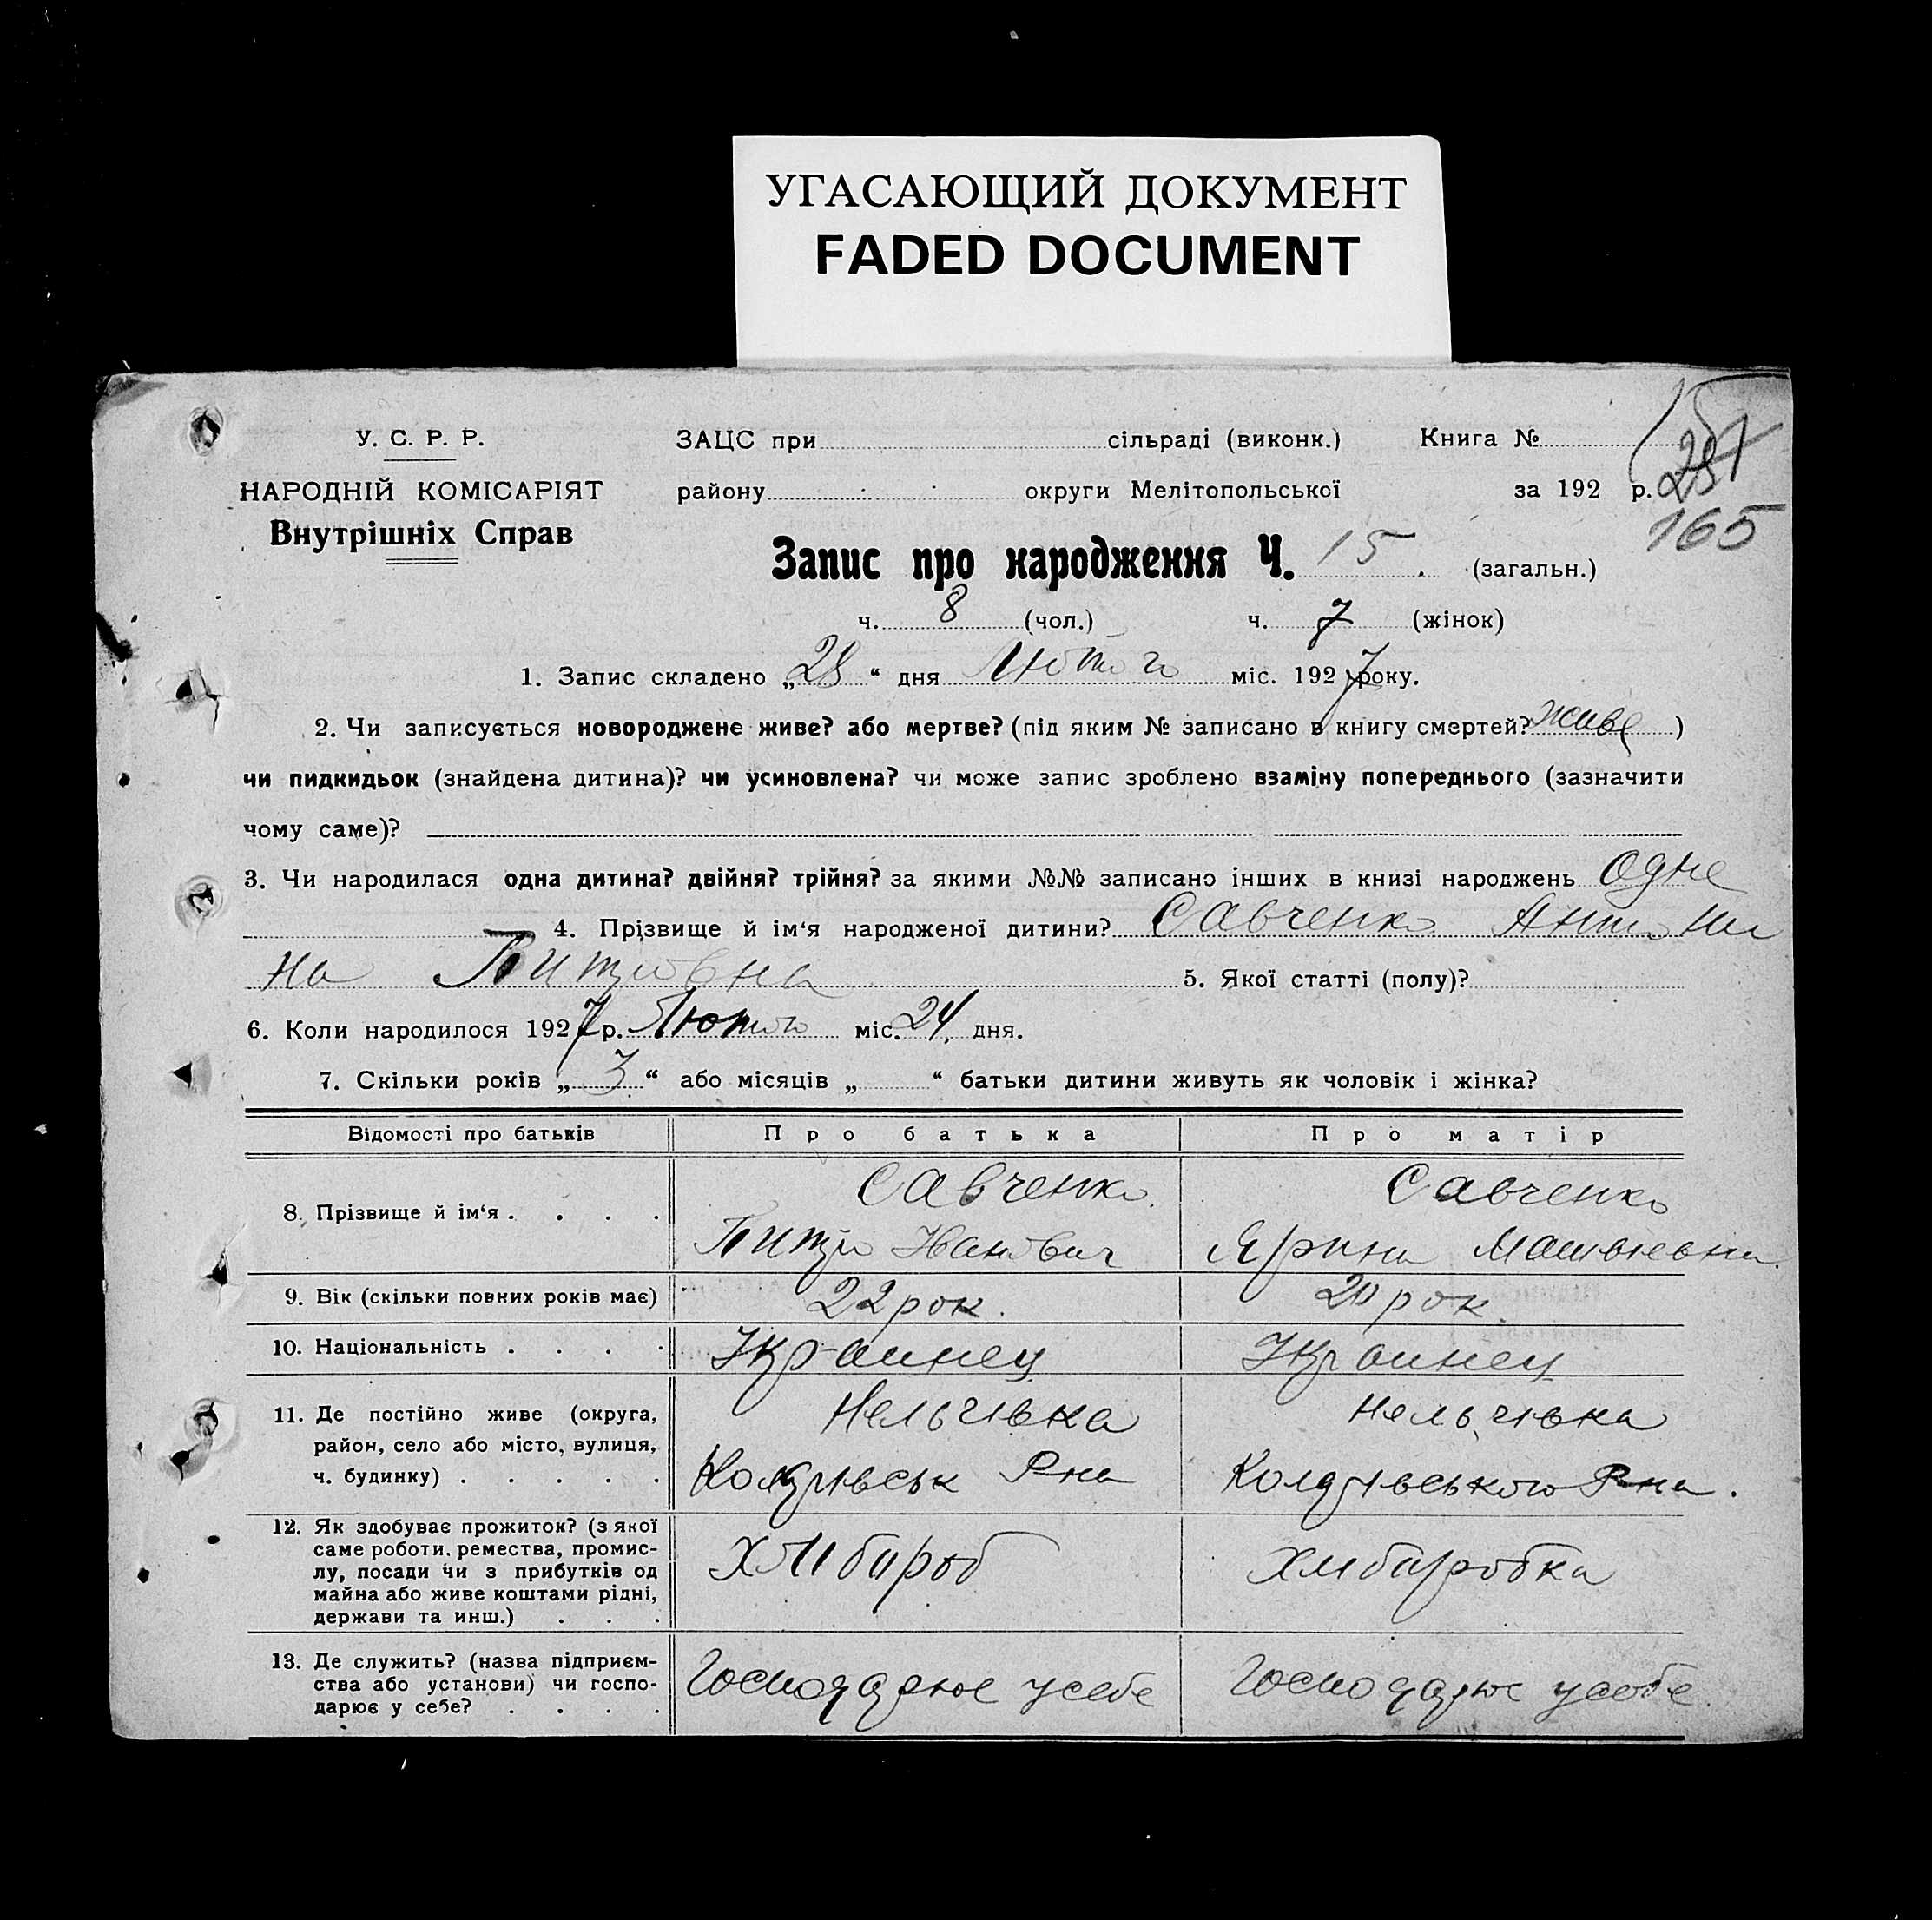 УГАСАЮЩИЙ ДОКУМЕНТ
FADED DOCUMENT
У. С. Р. Р. ЗАЦС при сільраді (виконк.) Книга №
НАРОДНІЙ КОМІСАРІЯТ району округи Мелітопольської за 192 р.
165
Внутрішніх Справ
Запис про народження Ч. 15 (загальн.)
ч. 8 (чол.) ч. 7 (жінок)
1. Запис складено „28“ дня Лютого міс. 1927 року.
2. Чи записується новороджене живе? або мертве? (під яким № записано в книгу смертей? живе)
чи пидкидьок (знайдена дитина)? чи усиновлена? чи може запис зроблено взаміну попереднього (зазначити
чому саме)?
3. Чи народилася одна дитина? двійня? трійня? за якими №№ записано інших в книзі народжень одне
4. Прізвище й ім‘я народженої дитини? Савченко Антони
на 5. Якої статті (полу)?
6. Коли народилося 1927 р. Лютого міс. 24 дня.
7. Скільки років „3“ або місяців „ “ батьки дитини живуть як чоловік і жінка?
Відомості про батьків Про батька Про матір
Савченко Савченко
8. Прізвище й ім‘я . . . .
Іванович Ярина Матвієвна
9. Вік (скільки повних років має) 22 рок. 20 рок
10. Національність . . . . Украинец Украинец
11. Де постійно живе (округа, Нельгівка Нельгівка
район, село або місто, вулиця,
ч. будинку) . . . . . Р-на Р-на.
12. Як здобуває прожиток? (з якої
саме роботи, ремества, промис-
лу, посади чи з прибутків од Хлібороб Хліборобка
майна або живе коштами рідні,
держави та инш.) . . .
13. Де служить? (назва підприєм-
ства або установи) чи госпо- Господарює у себе Господарює у себе
дарює у себе? . . . .